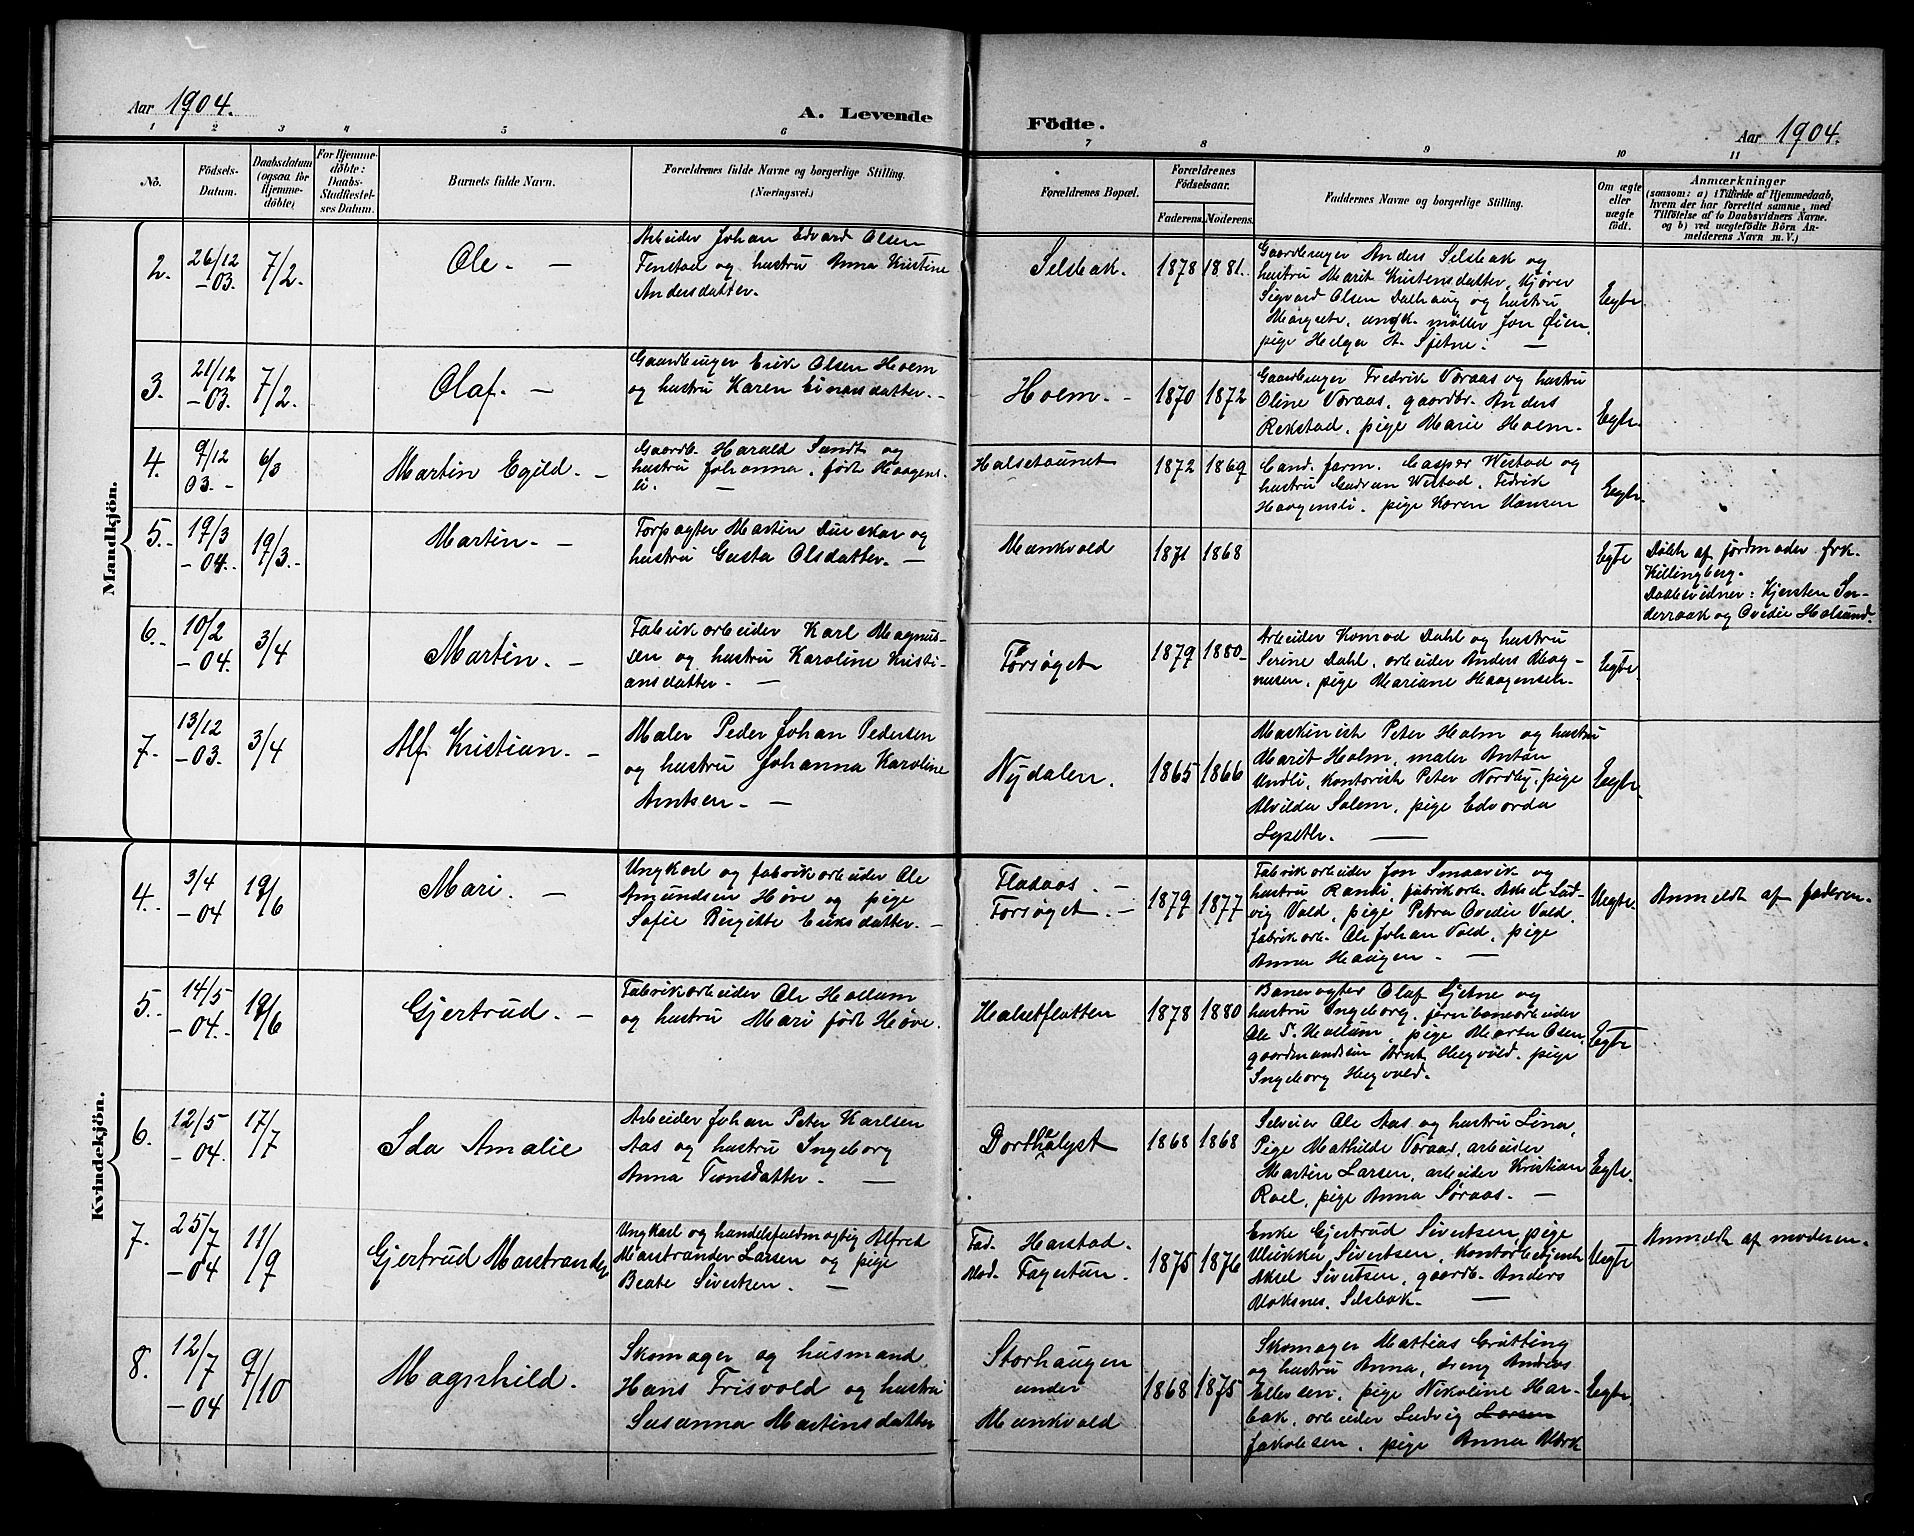 Aar 1904.
A. Levende
Födte.
Aar 1904.
1 2 3 4 5 6 7 8 9 10 11
No.
Födsels-
Datum.
Daabsdatum
(ogsaa for
Hjemme-
döbte)
For Hjemme-
döbte:
Daabs-
Stadfæstel-
ses Datum.
Barnets fulde Navn.
Forældrenes fulde Navne og borgerlige Stilling.
(Næringsvei.)
Forældrenes Bopæl.
Forældrenes
Födselsaar.
Faderens. Moderens.
Faddernes Navne og borgerlige Stilling.
Om ægte
eller
uægte
födt.
Anmærkninger
(saasom: a) i Tilfælde af Hjemmedaab,
hvem der har forrettet samme, med
Tilföielse af to Daabsvidners Navne.
og b) ved uægtefödte Börn An-
melderens Navn m. V.)
Mandkjön.
2.
26/12
-03.
7/2
Ole. -
Arbeider Johan Edvard Olsen
Fenstad og hustru Anna Kristine
Andersdatter.
Selsbak.
1878 1881.
Gaardbruger Anders Selsbak og
hustru Marit Kristensdatter, kjører
Sigvard Olsen Dalhaug og hustru
Margrete, ungk. møller Jon Øien,
pige Helga A. Sjetne. -
Egte
3.
21/12
-03.
7/2.
Olaf. -
Gaardbruger Erik Olsen Hoem
og hustru Karen Einarsdatter. -
Hoem. -
1870 1872
Gaardbruger Fredrik Voraas og hustru
Oline Voraas, gaardbr. Anders
Rekstad, pige Marie Hoem.
Egte.
4.
9/12
03. -
6/3
Martin Egild. -
Gaardb. Harald Sundt og
hustru Johanna, født Haagens-
li. -
Halsetaunet
1872 1869
Cand. farm. Casper Westad og
hustru Gudrun Westad, Fedrik
Haagensli, pige Karen Hansen
Egte.
5.
19/3
-04.
19/3.-
Martin. -
Forpagter Martin Dueskar og
hustru Gusta Olsdatter. -
Munkvold
1871 1868
Egte
Døbt af jordmoder frk.
Killingberg.
Daabsvidner: Kjersten In-
derraak og Ovedie Halsund.
6.
10/2
-04.
3/4
Martin. -
Fabrikarbeider Karl Magnus-
sen og hustru Karoline Kristi-
ansdatter. -
Forsøget
1879 1880.
Arbeider Konrad Dahl og hustru
Serine Dahl, arbeider Anders Mag-
nusen, pige Mariane Haagensen.
Egte.
7.
13/12
-03
3/4
Alf Kristian. -
Maler Peder Johan Pedersen
og hustru Johanna Karoline
Arntsen. -
Nydalen.
1865 1866
Maskinist Peter Holm og hustru
Marit Holm, maler Anton
Undli, kontorist Peter Nordby, pige
Alvilda Solem, pige Edvarda
Lyseth. -
Egte.
Kvindekjön.
4.
3/4
-04
19/6
Mari. -
Ungkarl og fabrikarbeider Ole
Amundsen Høve og pige
Sofie Birgitte Eriksdatter. -
Fladaas. -
Forsøget. -
1879 1877
Fabrikarbeider Jon Smaavik og
hustru Randi, fabrikarb. Aksel Lud-
vig Vold, pige Petra Ovedie Vold,
fabrikarb. Ole Johan Vold, pige
Anna Haugen. -
Uegte.
Anmeldt af faderen.
5.
14/5
-04.
19/6
Gjertrud. -
Fabrikarbeider Ole Hallum
og hustru Mari født Høve.
Halsetflatten
1878 1880
Banevogter Olaf Sjetne og
hustru Ingeborg, jernbanearbeider
Ole T. Hallum, pige Marta Osen,
gaardmandssøn Arnt Hegvold, pige
Ingeborg Hegvold.
Egte
6.
12/5
-04.
17/7
Ida Amalie
Arbeider Johan Peter Karlsen
Aas og hustru Ingeborg
Anna Tronsdatter. -
Dorthealyst
1868 1868
Selveier Ole Aas og hustru Lina,
Pige Mathilde Voraas, arbeider
Martin Larsen, arbeider Kristian
Roel, pige Anna Søraas. -
Egte.
7.
25/7
-04
11/9
Gjertrud Mastrander
Ungkarl og handelsfuldmægtig Alfred
Mastrander Larsen og pige
Beate Sivertsen. -
Fad. Harstad.
Mod. Fagertun.
1875 1876
Enke Gjertrud Sivertsen, pige
Ulrikke Sivertsen, kontorbetjent
Aksel Sivertsen, gaardb. Anders
Moksnes, Selsbak. -
Uegte
Anmeldt af moderen.
8.
12/7
-04
9/10
Magnhild.
Skomager og husmand
Hans Trisvold og hustru
Susanna Martinsdatter
Storhaugen
under
Munkvold
1868 1875
Skomager Mattias Grutting
og hustru Anna, dreng Andreas
Ellevsen, pige Nikoline Har-
bak, arbeider Ludvig Larsen
Jakobsen, pige Anna Mørk
Egte.